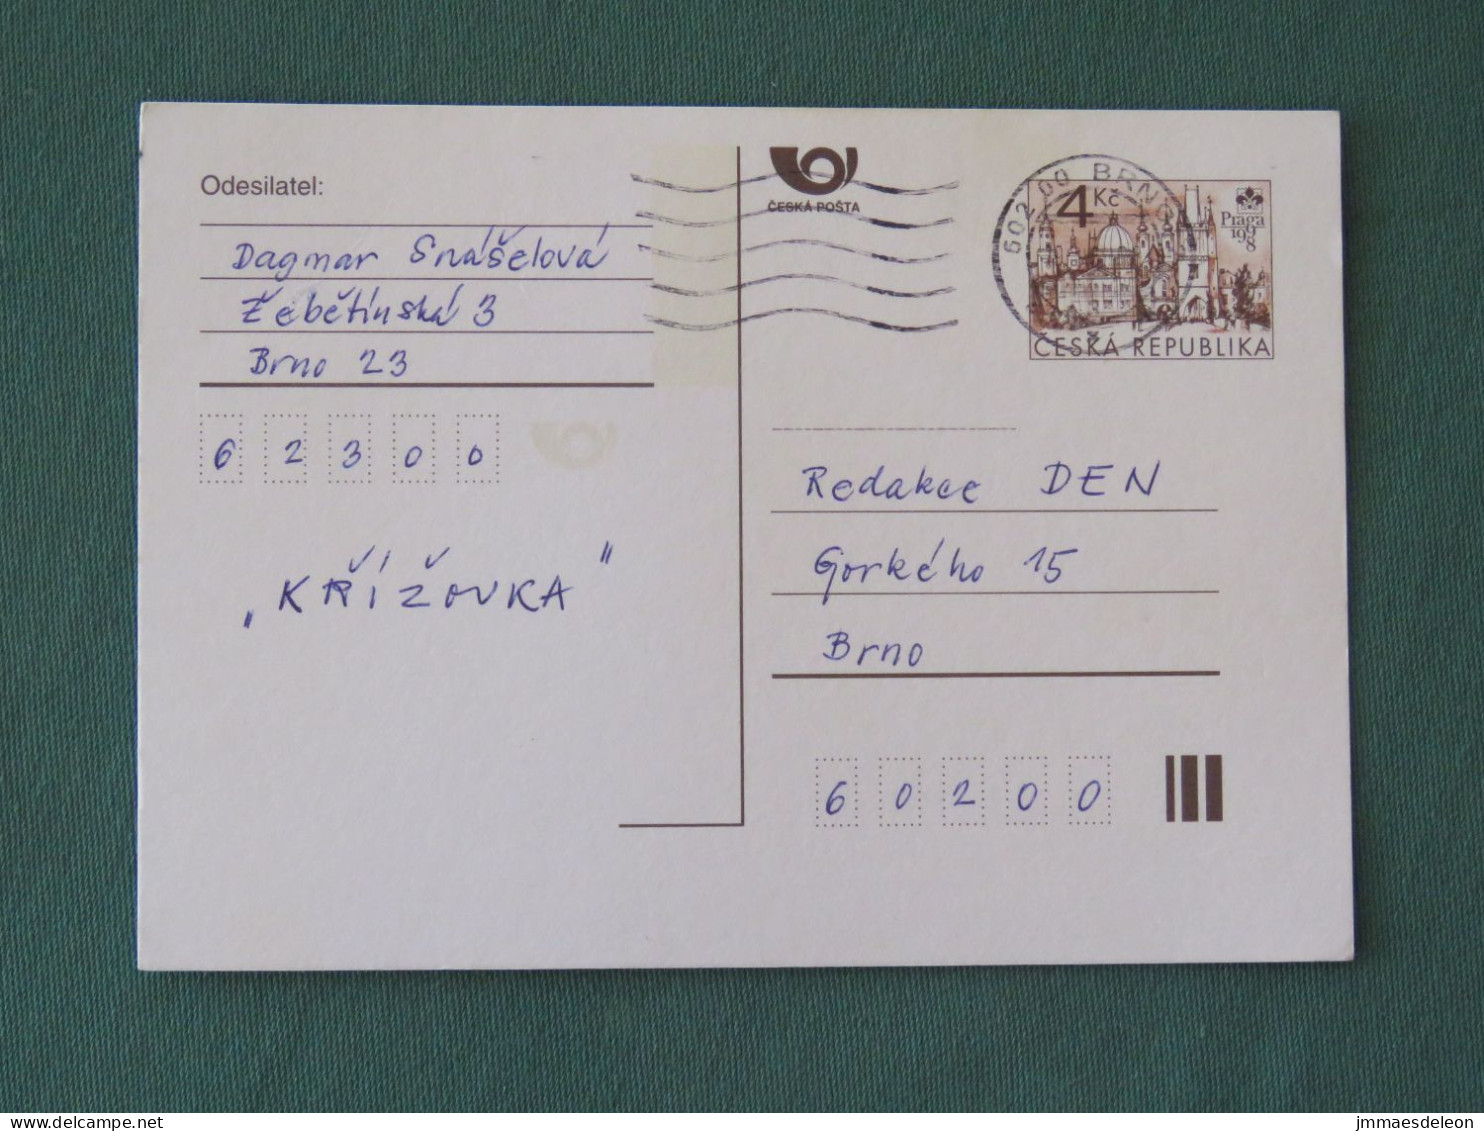 Odesilatel:
Dagmar Snášelová
Žebětínská 3
Brno 23
62300
„KŘÍŽOVKA"
ČESKÁ POŠTA
602 00 BRNO
4 Kč
Praga
1998
ČESKÁ REPUBLIKA
Redakce DEN
Gorkého 15
Brno
60200
www.delcampe.net
jmmaesdeleon